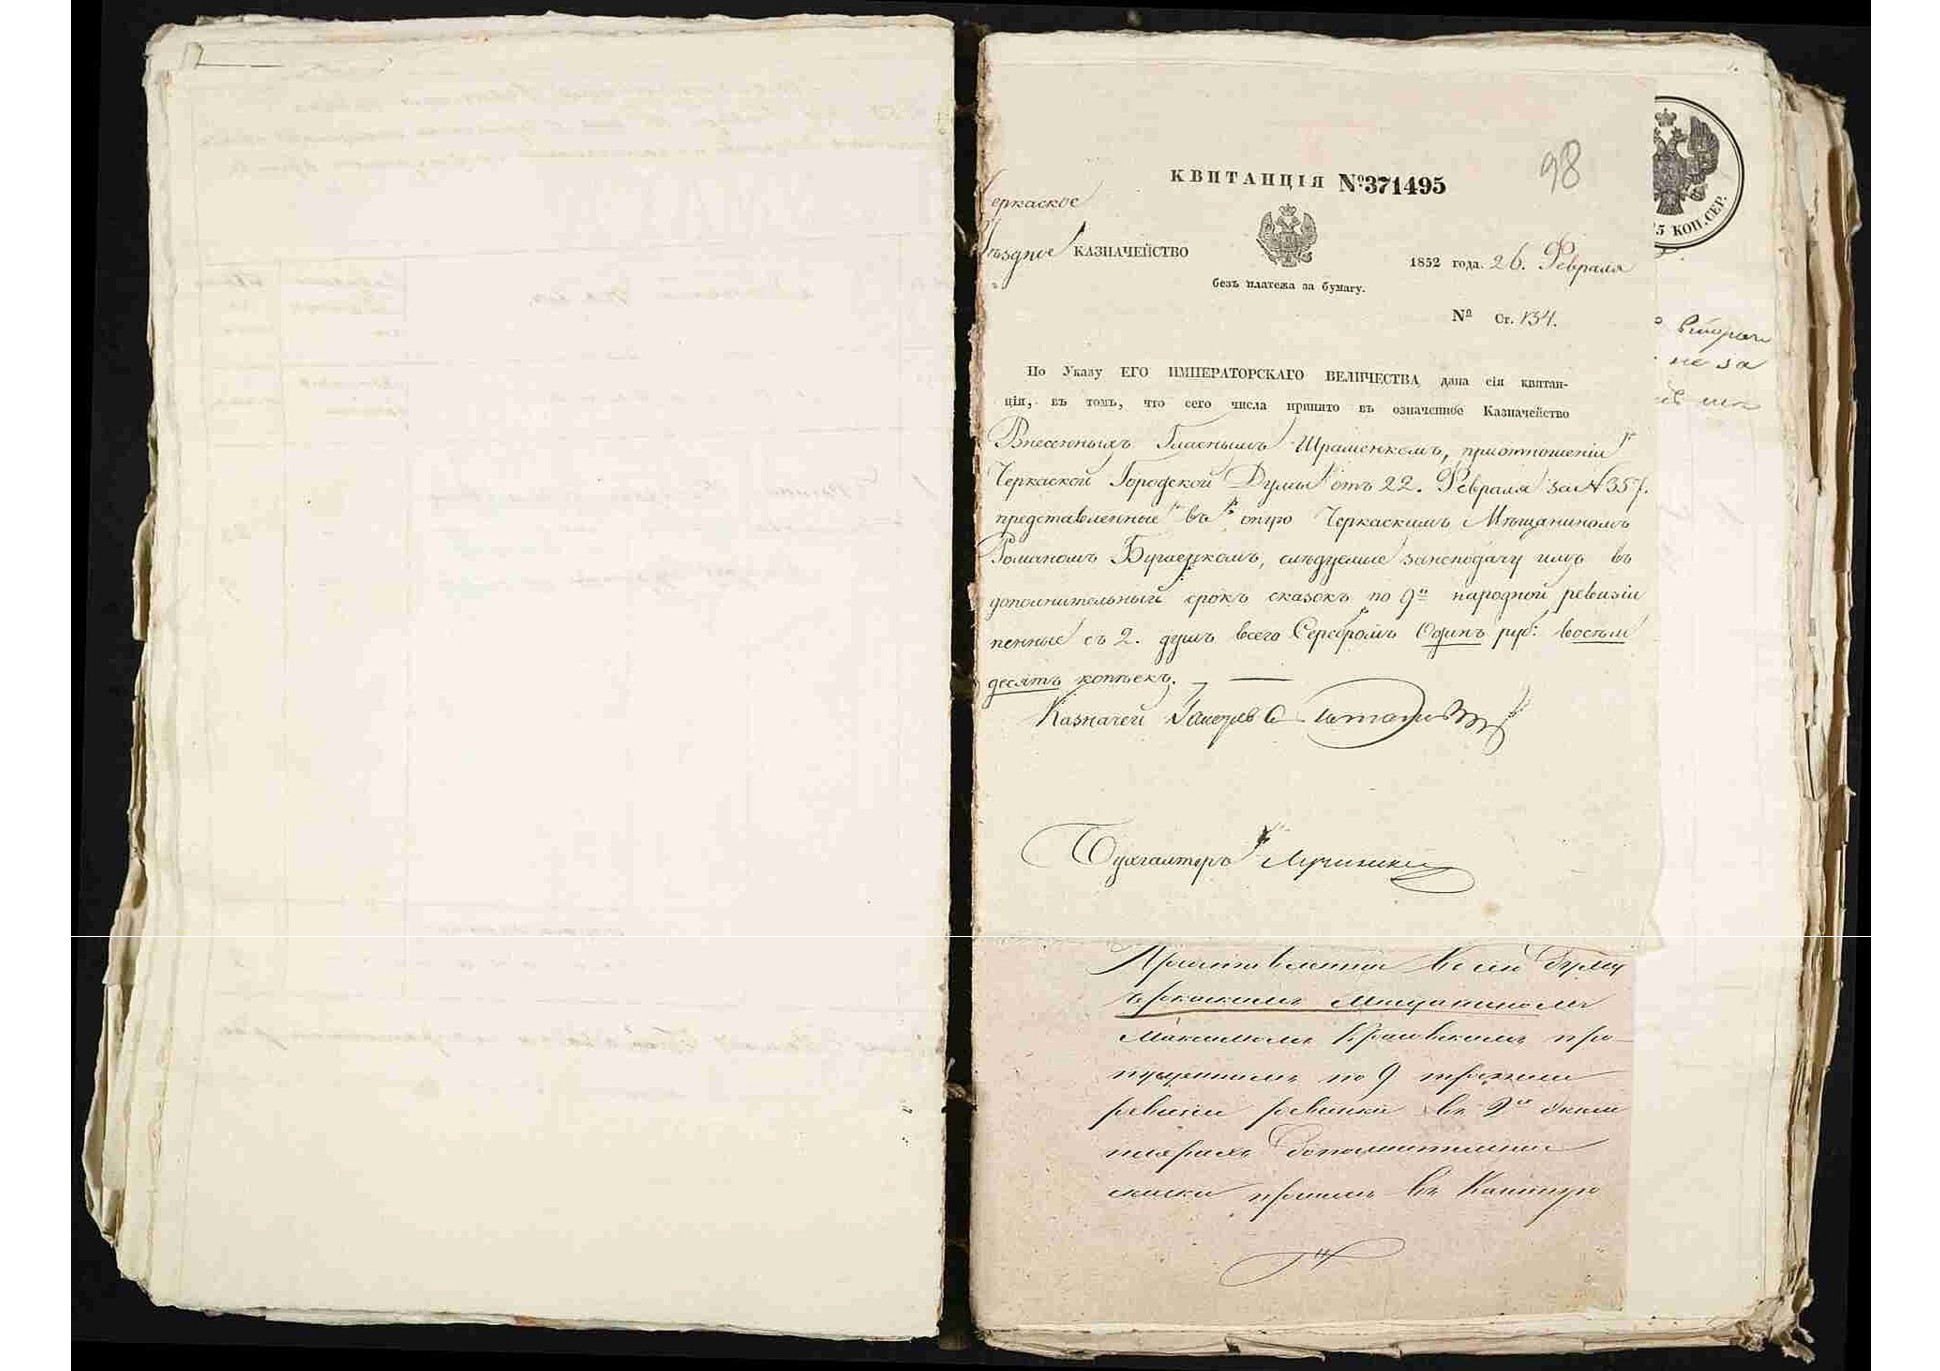 КВИТАНЦІЯ №371495
98
Черкаское
Уѣздное КАЗНАЧЕЙСТВО
1852 года. 26. Февраля
безъ платежа за бумагу.
№ Ст. 134.
По Указу ЕГО ИМПЕРАТОРСКАГО ВЕЛИЧЕСТВА дана сія квитан-
ція, въ томъ, что сего числа принято въ означенное Казначейство
Внесенныхъ Гласнымъ Шраменкомъ, приотношеніи
Черкаской Городской Думы отъ 22. Февраля за № 357.
представленные въ оную Черкаскимъ Мѣщаниномъ
Романомъ Бугаецкомъ, слѣдуемые занеподачу имъ въ
дополнительный срокъ сказокъ по 9й народной ревизіи
пенные съ 2. душъ всего Серебромъ Одинъ руб: восемь
десятъ копѣекъ.
Казначей
Бухгалтеръ
5 КОП. СЕР.
не за
въ сію Думу
Черкаскимъ Мещаниномъ
Максимомъ про-
по 9
ревизіи въ 2хъ
дополнительные
сказки въ